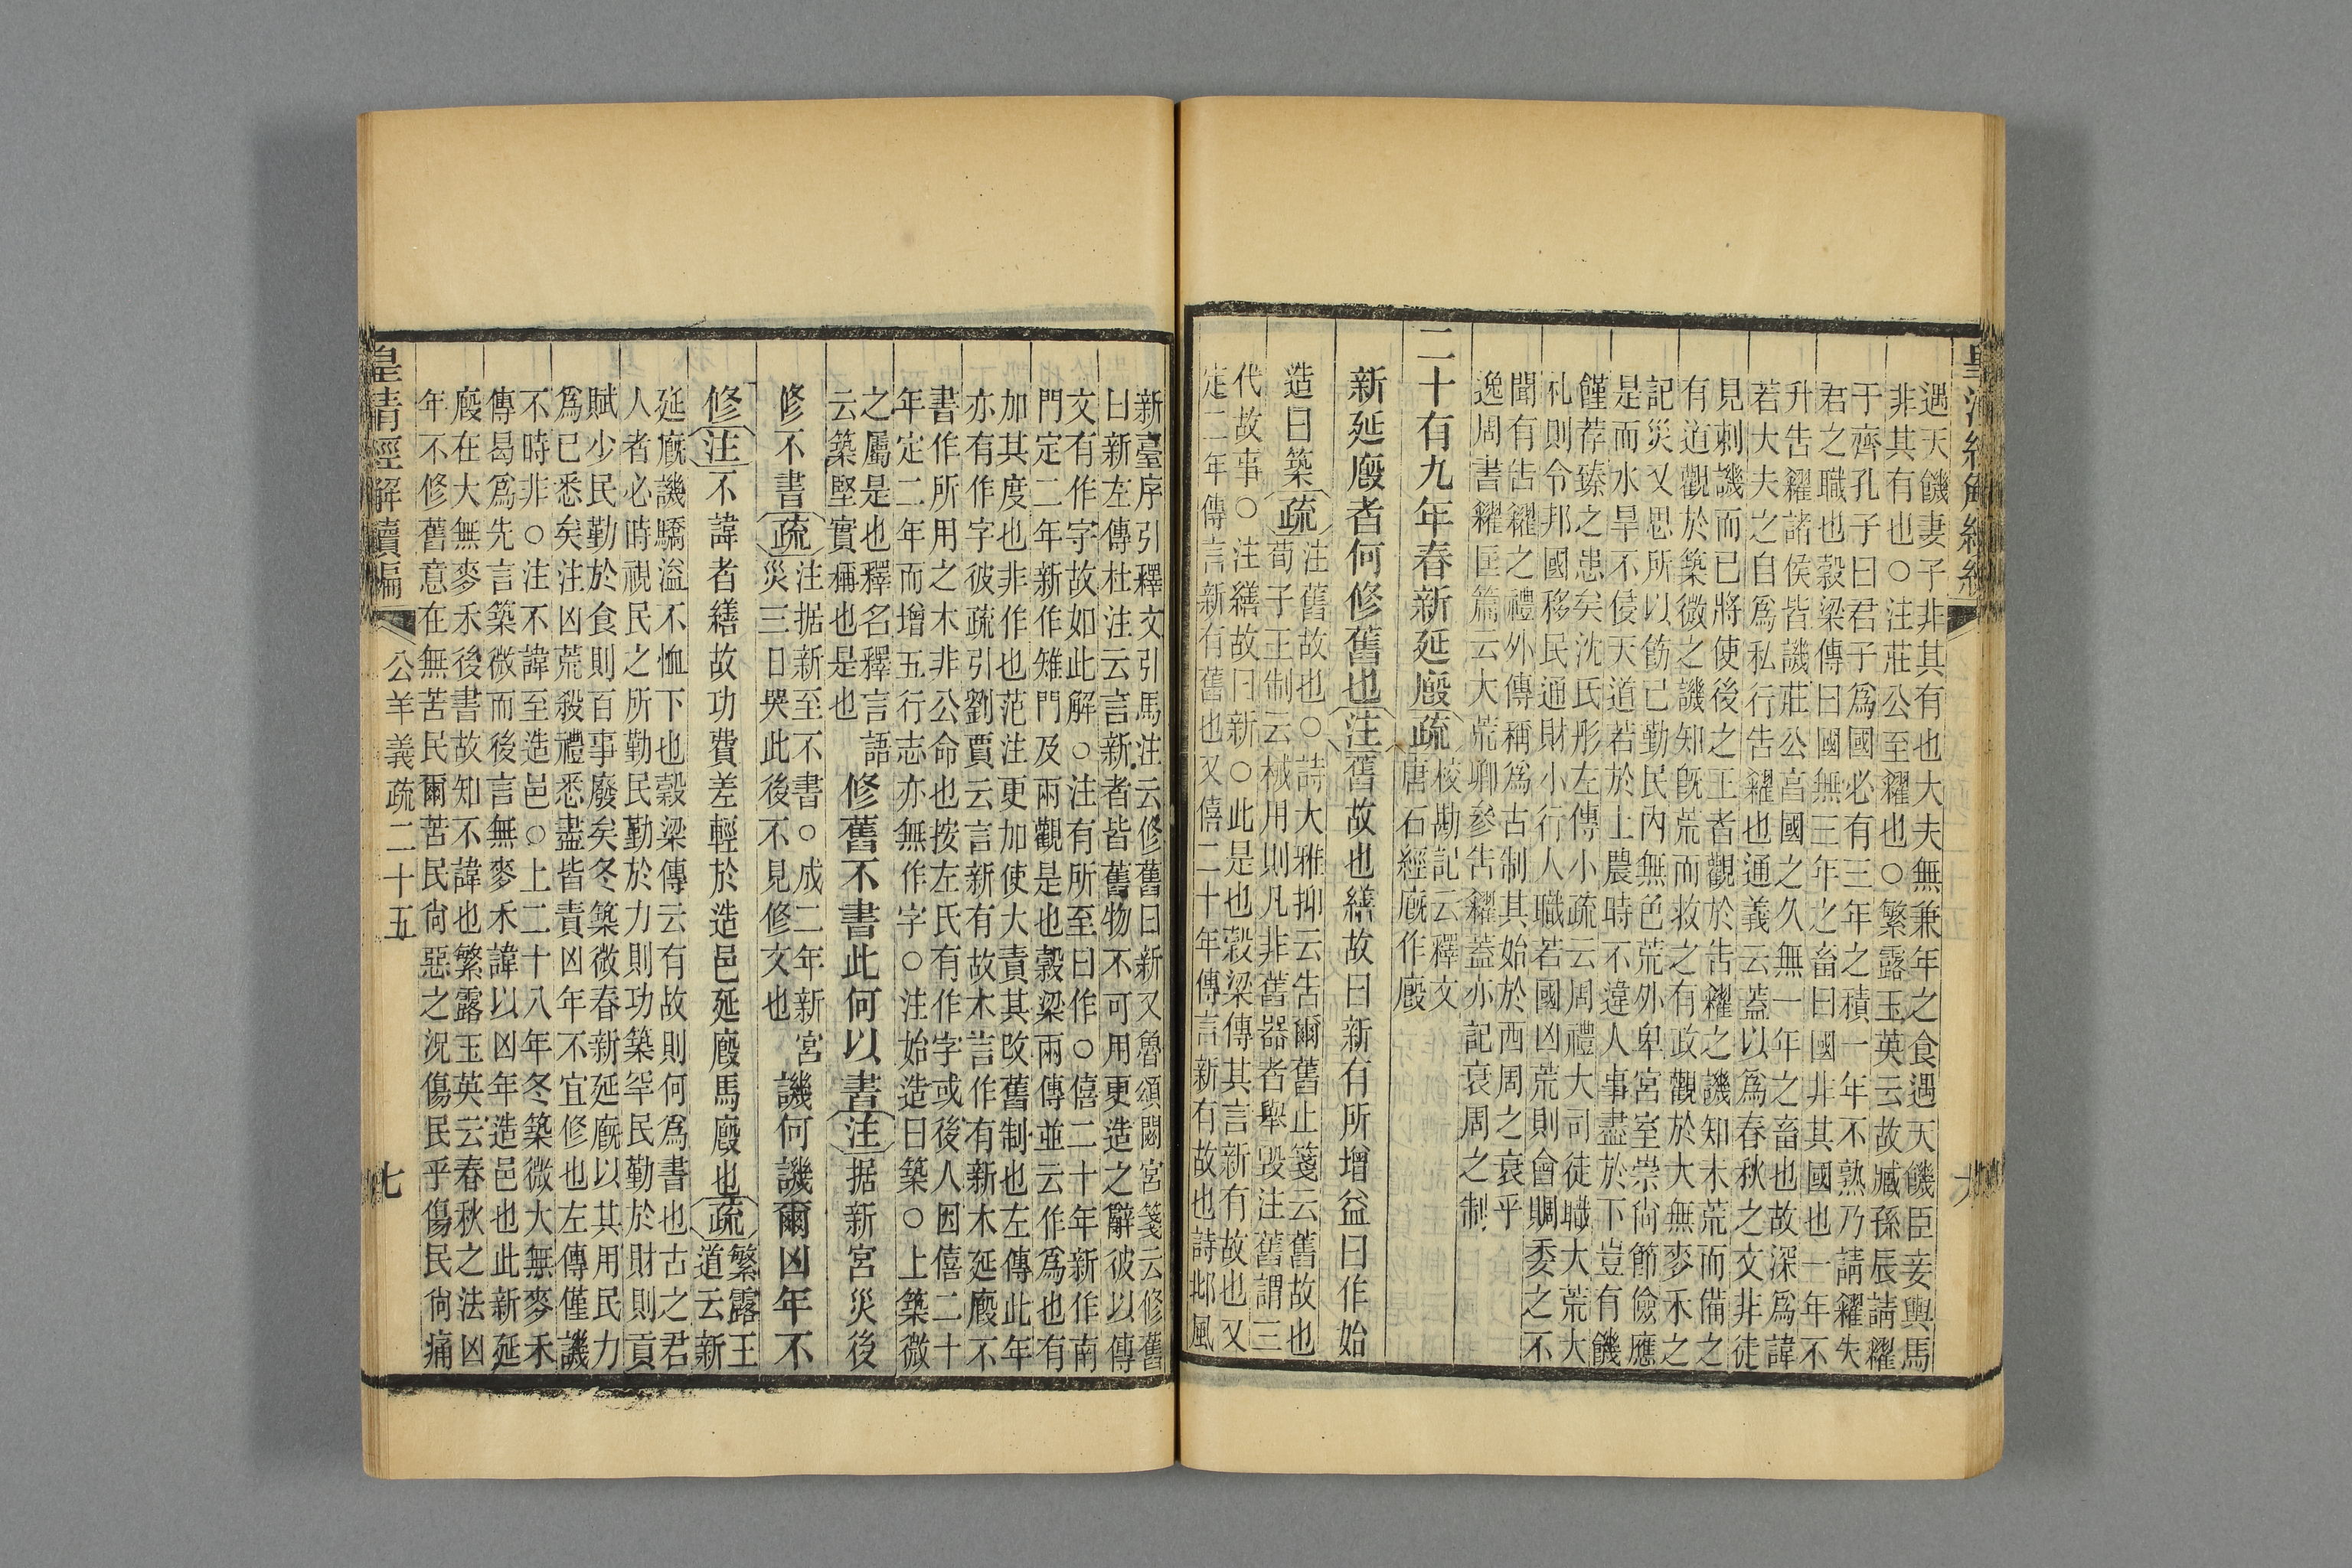 遇天饑妻子非其有也大夫無兼年之食遇天饑臣妾輿馬
非其有也○注莊公至糴也○繁露玉英云故臧孫辰請糴
于齊孔子曰君子爲國必有三年之積一年不熟乃請糴失
君之職也穀梁傳曰國無三年之畜曰國非其國也一年不
升告糴諸侯皆譏莊公㝛國之久無一年之畜也故深爲諱
若大夫之自爲私行告糴也通義云蓋以爲春秋之文非徒
見刺譏而已將使後之王者觀於告糴之譏知未荒而備之
有道觀於築微之譏知旣荒而救之有政觀於大無麥禾之
記災又思所以飭己勤民內無色荒外卑宮室崇尙節儉應
是而水旱不侵天道若於上農時不違人事盡於下豈有饑
饉荐臻之患矣沈氏彤左傳小疏云周禮大司徒職大荒大
札則令邦國移民通財小行人職若國凶荒則令賙委之不
聞有告糴之禮外傳稱爲古制其始於西周之衰乎
逸周書糴匡篇云大荒卿參告糴蓋亦記衰周之制
二十有九年春新延廄疏校勘記云釋文
唐石經廐作廄
新延廄者何修舊也注舊故也繕故曰新有所增益曰作始
造曰築疏注舊故也○詩大雅抑云告爾舊止箋云舊故也
荀子王制云械用則凡非舊器者舉毀注舊謂三
代故事○注繕故曰新○此是也穀梁傳其言新有故也又
定二年傳言新有舊也又僖二十年傳言新有故也詩邶風
新臺序引釋文引馬注云修舊曰新又魯頌閟宮箋云修舊
曰新左傳杜注云言新者皆舊物不可用更造之辭彼以傳
文有作字故如此解○注有所至曰作○僖二十年新作南
門定二年新作雉門及兩觀是也穀梁兩傳並云作爲也有
加其度也非作也范注更加使大責其改舊制也左傳此年
亦有作字彼疏引劉賈云言新有故木言作有新木延廄不
書作所用之木非公命也按左氏有作字或後人因僖二十
年定二年而增五行志亦無作字○注始造曰築○上築微
之屬是也釋名釋言語
云築堅實稱也是也修舊不書此何以書注据新宮災後
修不書疏注据新至不書○成二年新宮
災三日哭此後不見修文也譏何譏爾凶年不
修注不諱者繕故功費差輕於造邑延廄馬廄也疏繁露王
道云新
延廐譏驕溢不恤下也穀梁傳云有故則何爲書也古之君
人者必時視民之所勤民勤於力則功築罕民勤於財則貢
賦少民勤於食則百事廢矣冬築微春新延廐以其用民力
爲已悉矣注凶荒殺禮悉盡皆責凶年不宜修也左傳僅譏
不時非○注不諱至造邑○上二十八年冬築微大無麥禾
傳曷爲先言築微而後言無麥禾諱以凶年造邑也此新延
廄在大無麥禾後書故知不諱也繁露玉英云春秋之法凶
年不修舊意在無苦民爾苦民尙惡之況傷民乎傷民尙痛
皇清經解續編
公羊義疏二十五
七